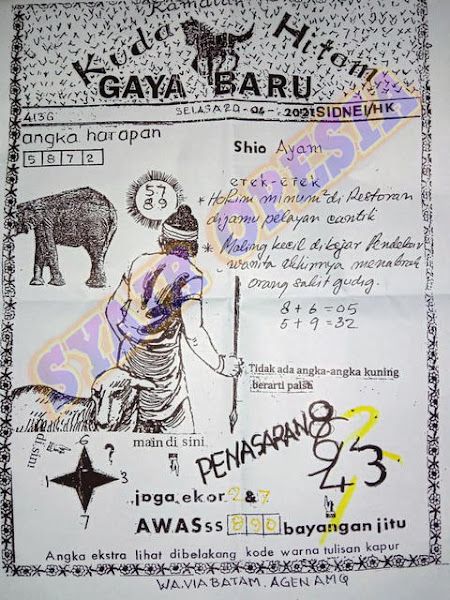 Ramalan
Kuda Hitam
GAYA BARU
413G
SELASA 20-04-2021 SIDNEI/HK
angka harapan
5 8 7 2
Shio Ayam
57
89
etek-etek
* Hakim minum² di Restoran
dijamu pelayan cantik
* Maling kecil dikejar Pendekar
wanita akhirnya menabrak
orang sakit gudig.
8 + 6 = 05
5 + 9 = 32
SYAIR OPESIA
Tidak ada angka-angka kuning
berarti palsu
di sini
6
?
1
3
7
main di sini
PENASARAN
8
6
9
2
3
4
joga ekor 2 & 7
AWASss 890 bayangan jitu
Angka ekstra lihat dibelakang kode warna tulisan kapur
WA.VIA BATAM. AGEN AMQ